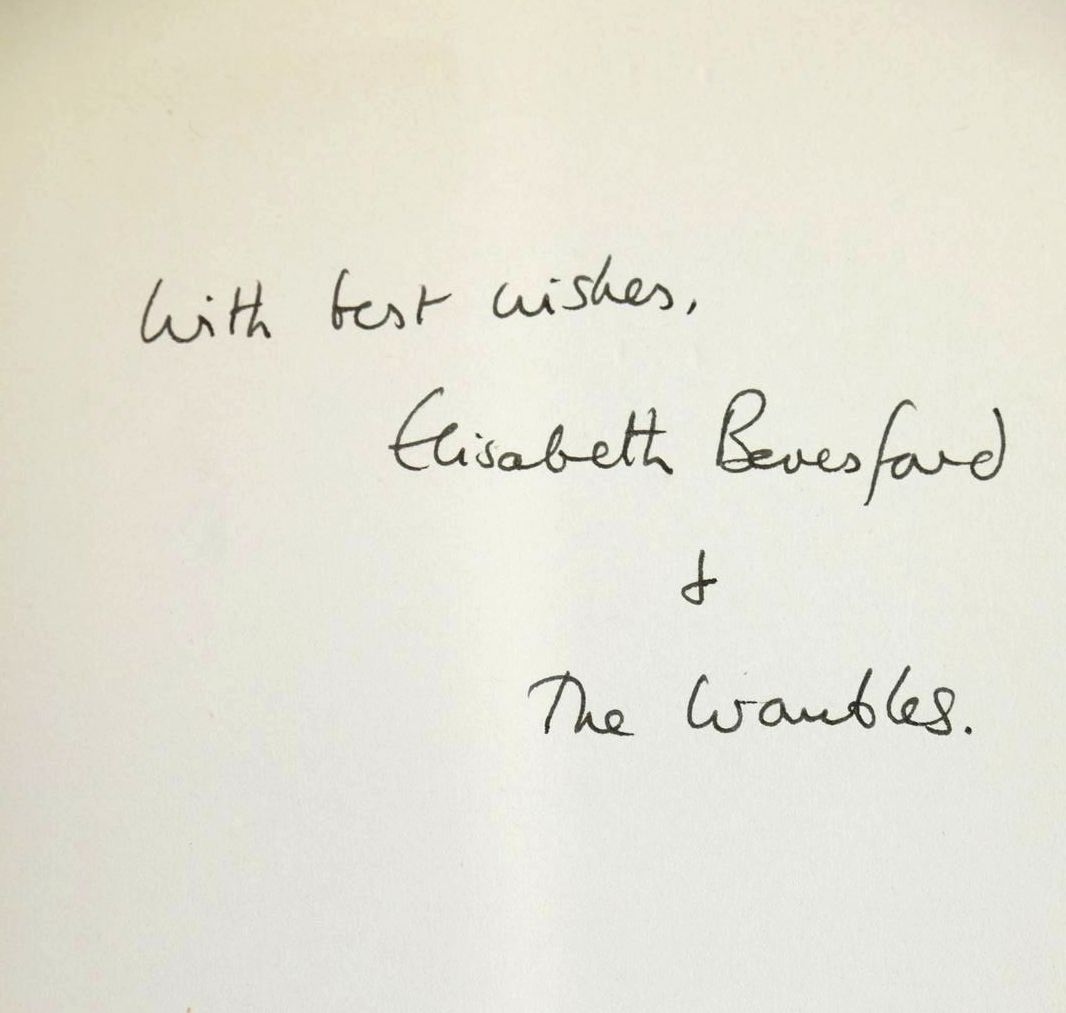 With best wishes,
Elisabeth Beresford
&
The Wombles.